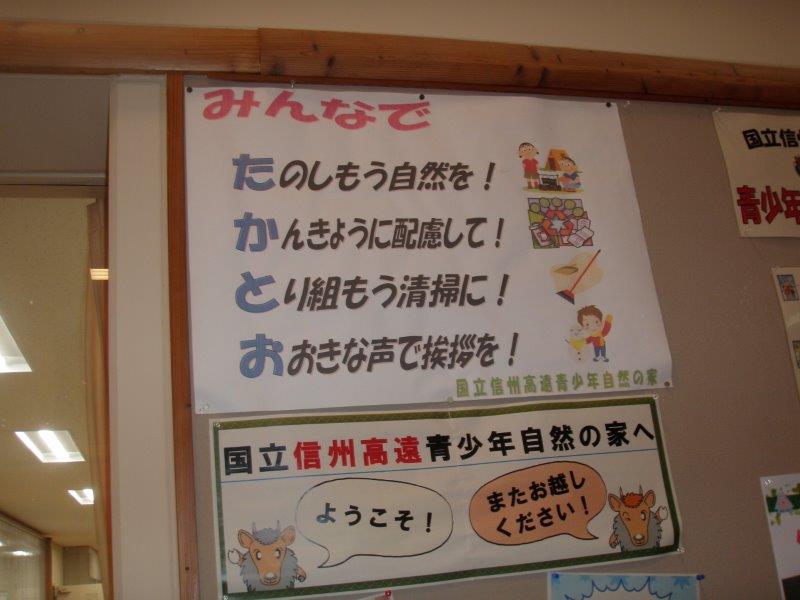 みんなで
たのしもう自然を！
かんきょうに配慮して！
とり組もう清掃に！
おおきな声で挨拶を！
国立信州高遠青少年自然の家
国立信州高遠青少年自然の家へ
ようこそ！
またお越し
ください！
国立信
青少年